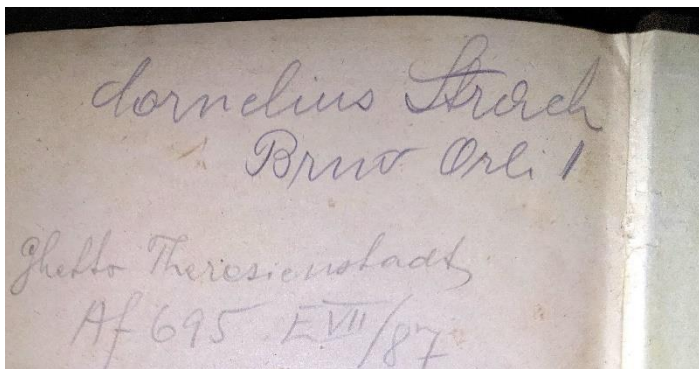 Cornelius Strach
Brno Orli 1
Ghetto Theresienstadt
Af 695 E VII/87